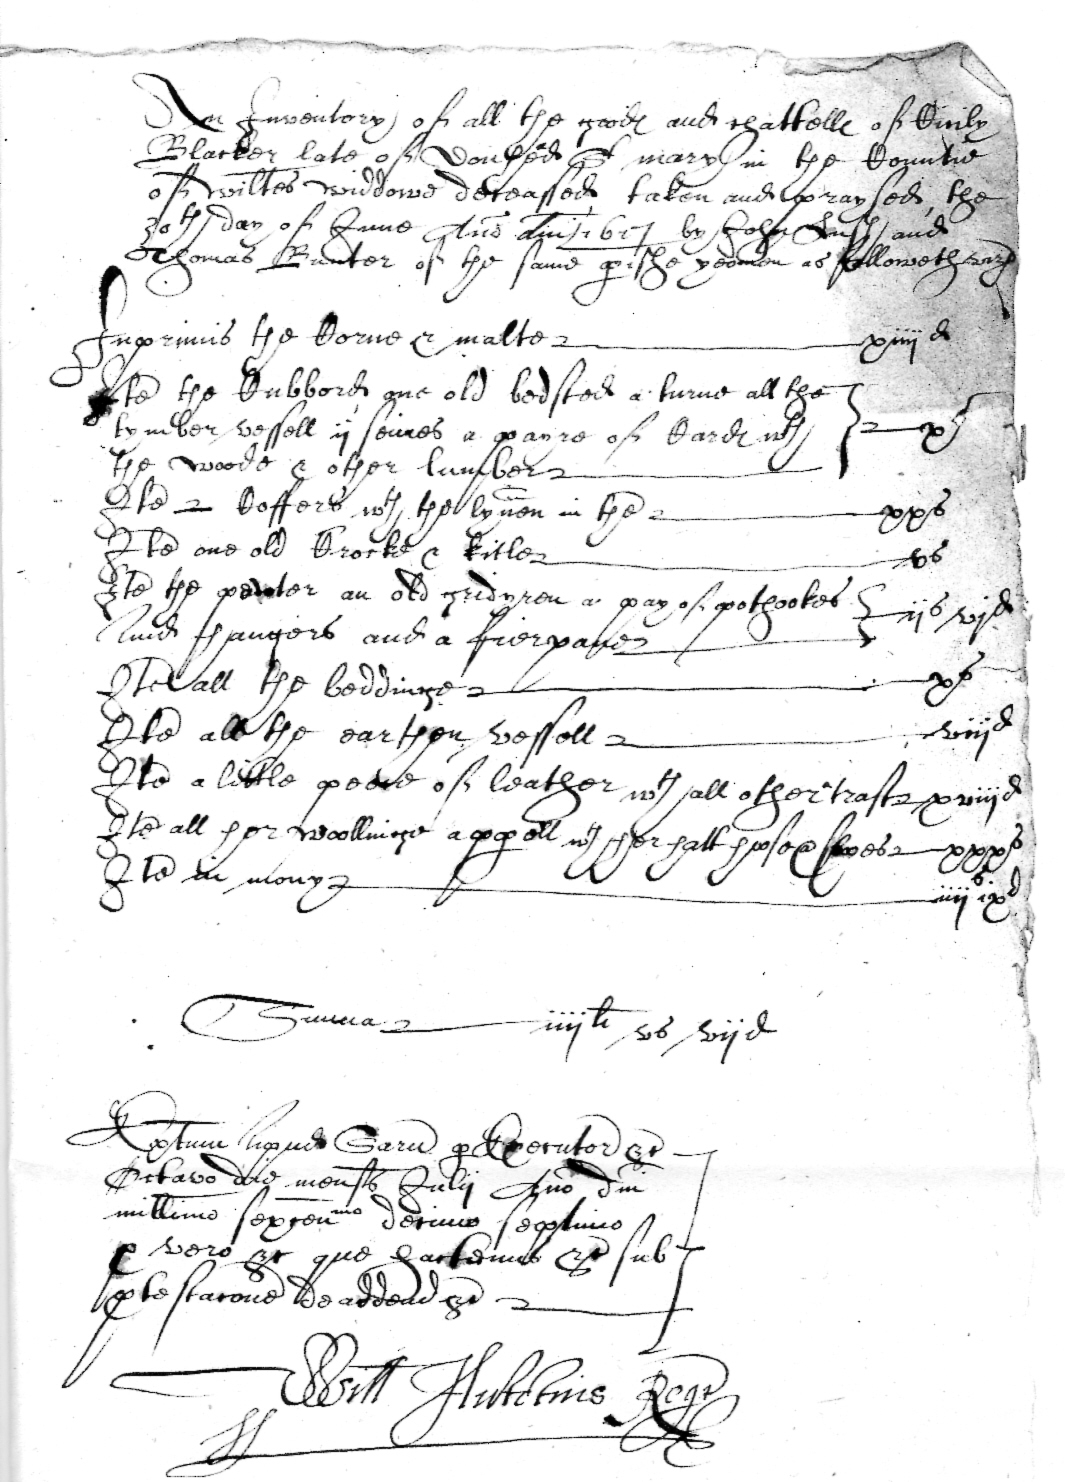 An Inventory of all the goods and chattells of Cicily
Blacker late of Donhed St mary in the Countie
of wiltes widdowe deceassed taken and praysed the
30th day of June Ano dni 1617 by John and
Thomas Bunter of the same pishe yeomen as followeth vizt
Inprimis the Corne & malte xiiijd
Ite the Cubbord one old bedsted a turne all the
tymber vessell ij seives a payre of Cards wth
the woode & other lumber xs
Ite 2 Coffers wth the lynnen in the xxs
Ite one old Crocke & kitle vs
Ite the pewter an old gridyren a pay of pothookes
And hangers and a fierpane iijs vjd
Ite all the beddinge xs
Ite all the earthen vessell viijd
Ite a little peece of leather wth all other trash xviijd
Ite all her woollinge appell wth her hatt hose & shoes xxxs
Ite in mony iiijs ixd
Summa iiijli vs vijd
Exhtum Apud Sarum p Executor &c
Octavo die mensis Julij Ano dni
millimo sexcenmo decimo septimo
p vero &c que hactenus &c sub
ptestacone de addend &c
Willm Hutchins Regr